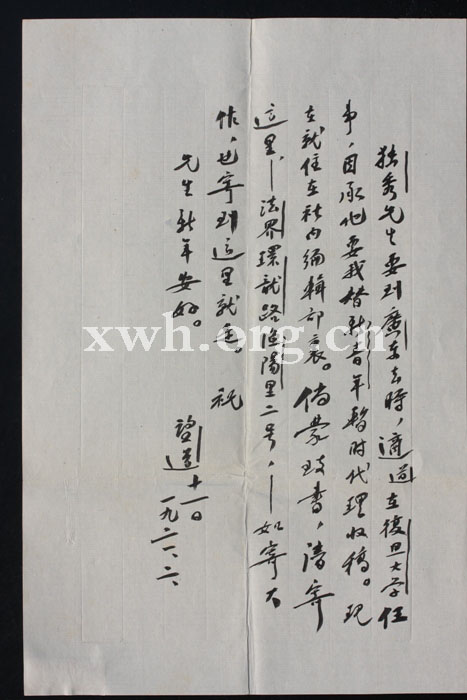 独秀先生要到廣东去時，適道在復旦大学任
事，因承他要我替新青年暫时代理收稿。现
在就住在社内编辑部裏。倘蒙致書，请寄
這里，—法界環龍路漁陽里二号，—如寄大
作，也寄到這里就是。 祝
先生新年安好。
望道 十一日
一九二一、二、
xwh.org.cn